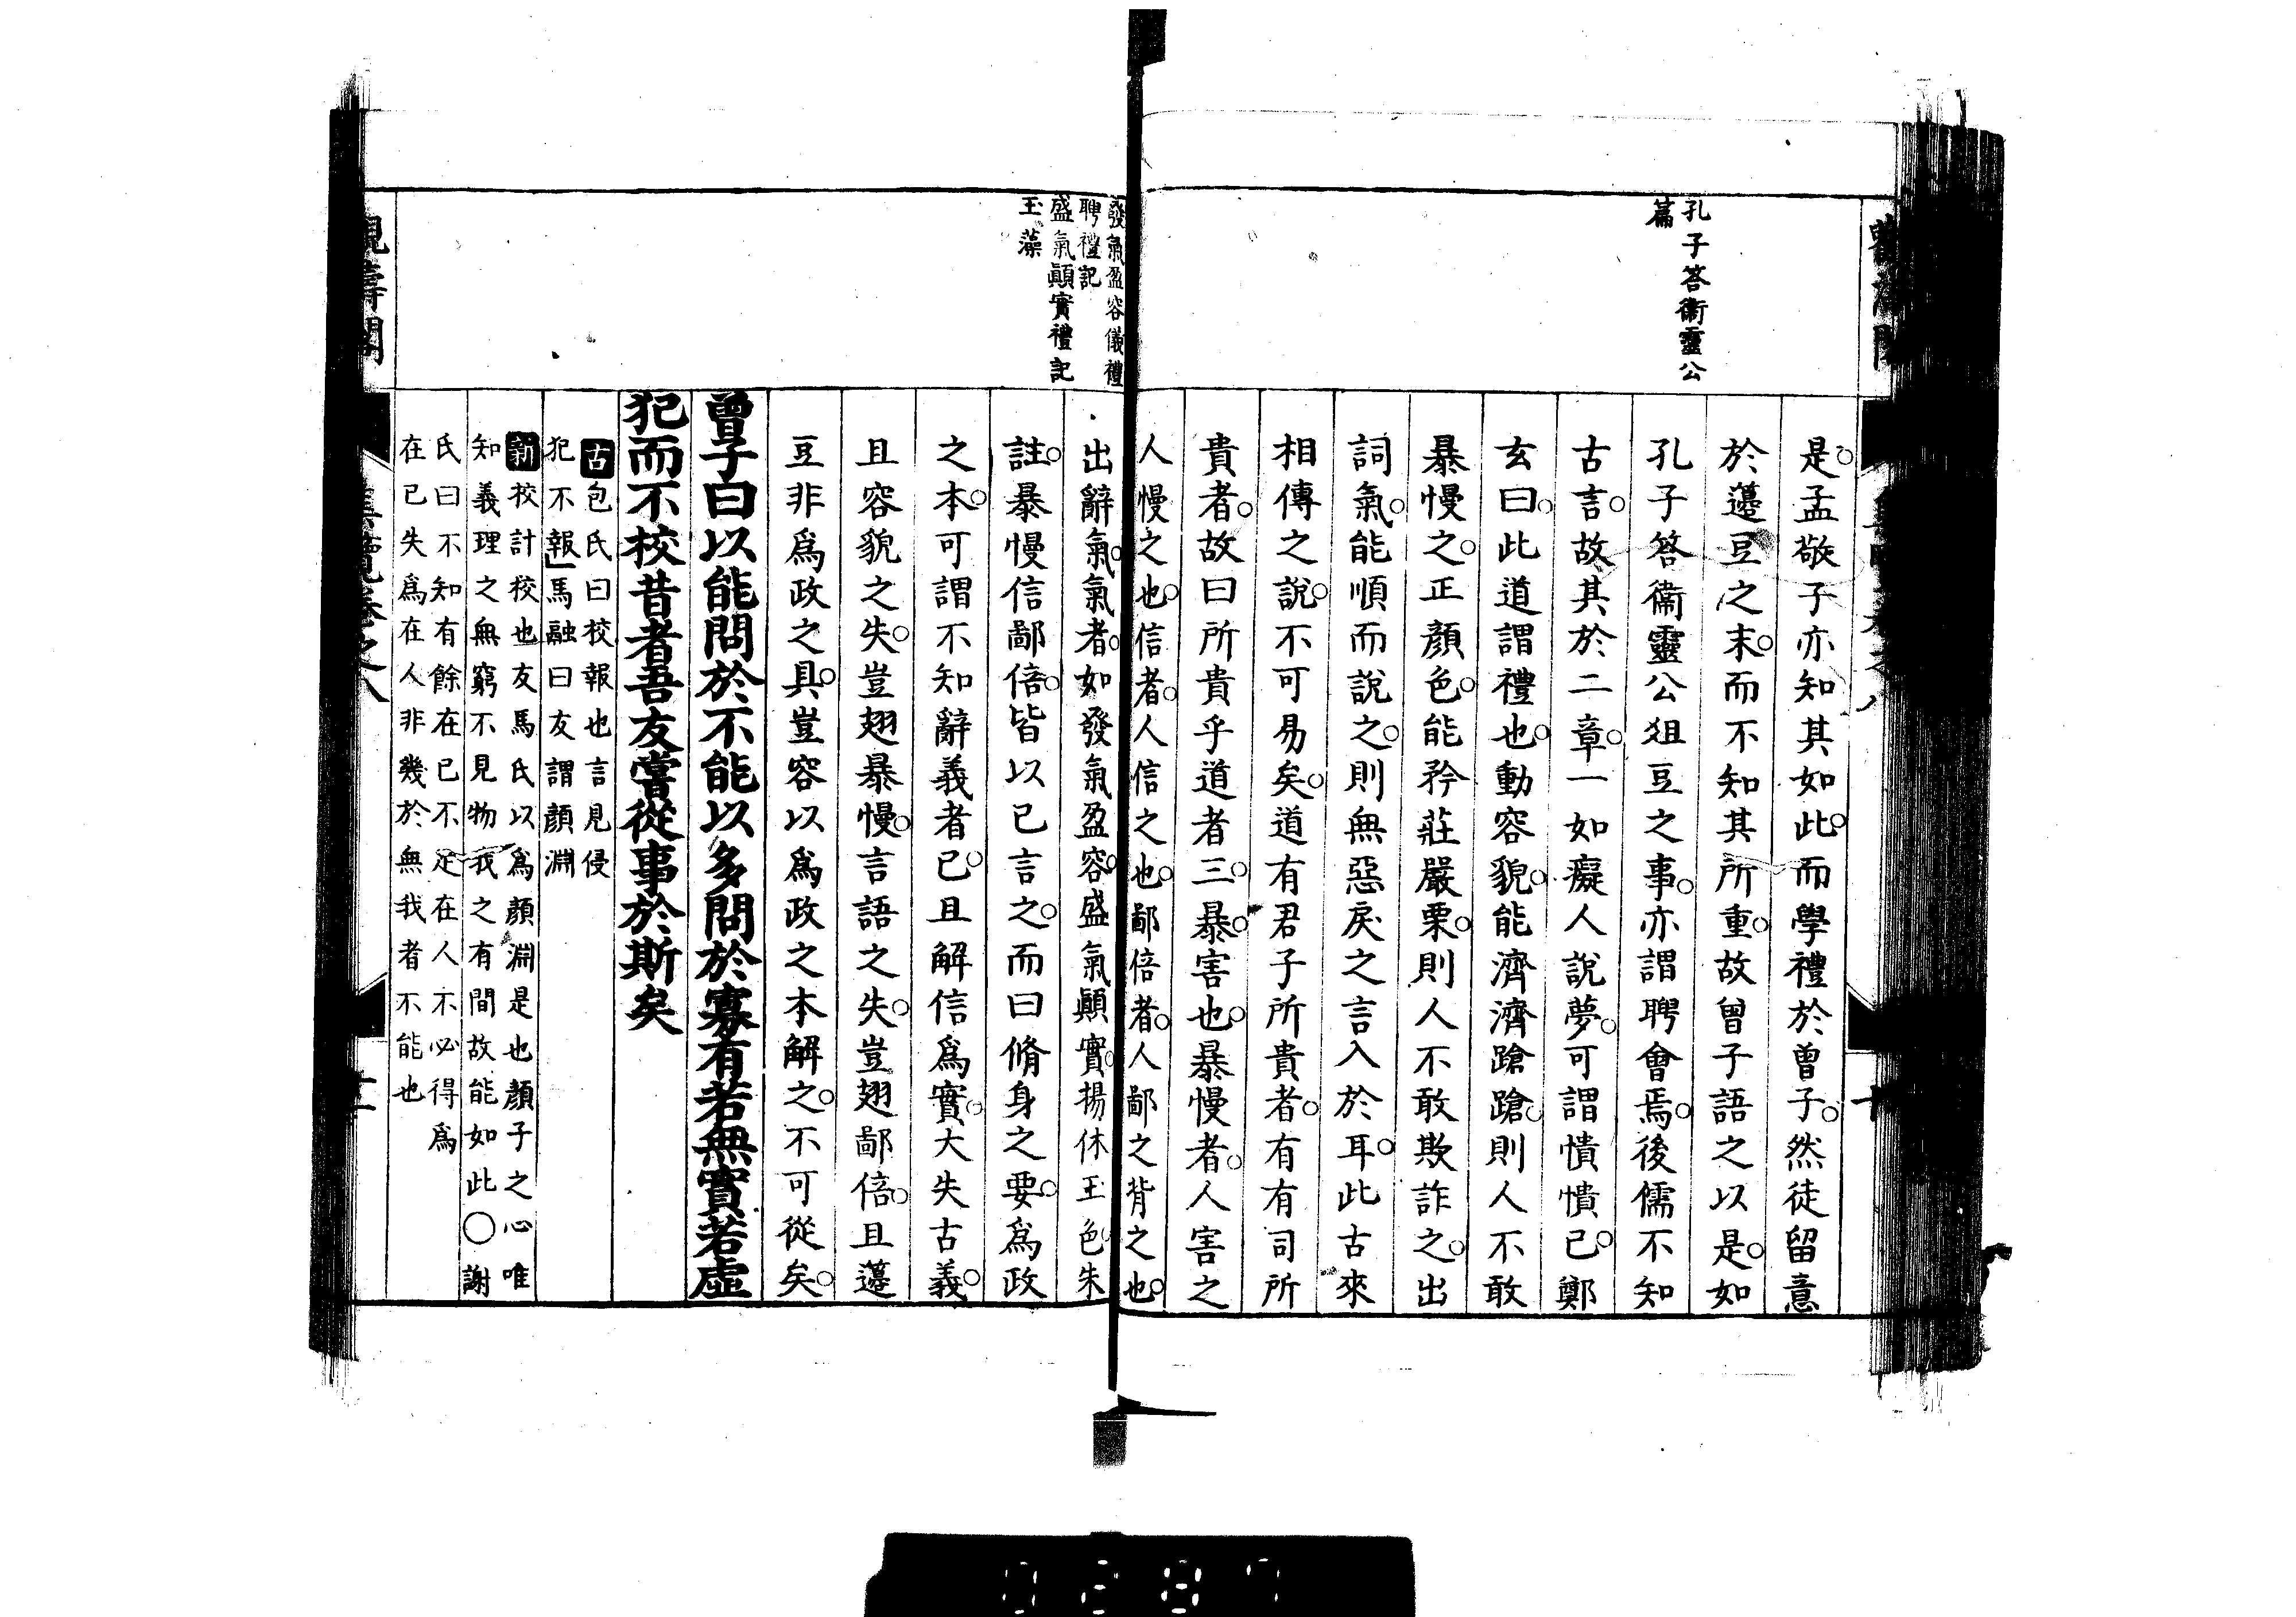 孔子答衞靈公
篇
是孟敬子亦知其如此而學禮於曾子然徒留意
於籩豆之末而不知其所重故曾子語之以是如
孔子答衞靈公俎豆之事亦謂聘會焉後儒不知
古言故其於二章一如癡人說夢可謂憒憒已鄭
玄曰此道謂禮也動容貌能濟濟蹌蹌則人不敢
暴慢之正顏色能矜莊嚴栗則人不敢欺詐之出
詞氣能順而說之則無惡戾之言入於耳此古來
相傳之說不可易矣道有君子所貴者有有司所
貴者故曰所貴乎道者三暴害也暴慢者人害之
人慢之也信者人信之也鄙倍者人鄙之背之也
發氣盈容儀禮
聘禮記
盛氣顚實禮記
玉藻
出辭氣氣者如發氣盈容盛氣顚實揚休玉色朱
註暴慢信鄙倍皆以已言之而曰脩身之要爲政
之本可謂不知辭義者已且解信爲實大失古義
且容貌之失豈翅暴慢言語之失豈翅鄙倍且籩
豆非爲政之具豈容以爲政之本解之不可從矣
曾子曰以能問於不能以多問於寡有若無實若虛
犯而不校昔者吾友嘗從事於斯矣
古包氏曰校報也言見侵
犯不報」馬融曰友謂顏淵
新校計校也友馬氏以爲顏淵是也顏子之心唯
知義理之無窮不見物我之有間故能如此〇謝
氏曰不知有餘在已不足在人不必得爲
在已失爲在人非幾於無我者不能也
觀濤閣